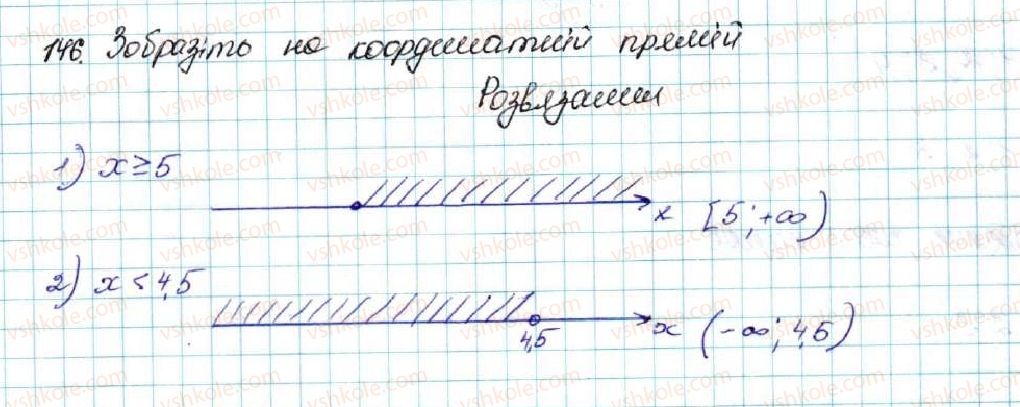 146. Зобразіть на координатній прямій
Розвязання
1) x ≥ 5
x [5; +∞)
2) x < 4,5
4,5
x (-∞; 4,5)